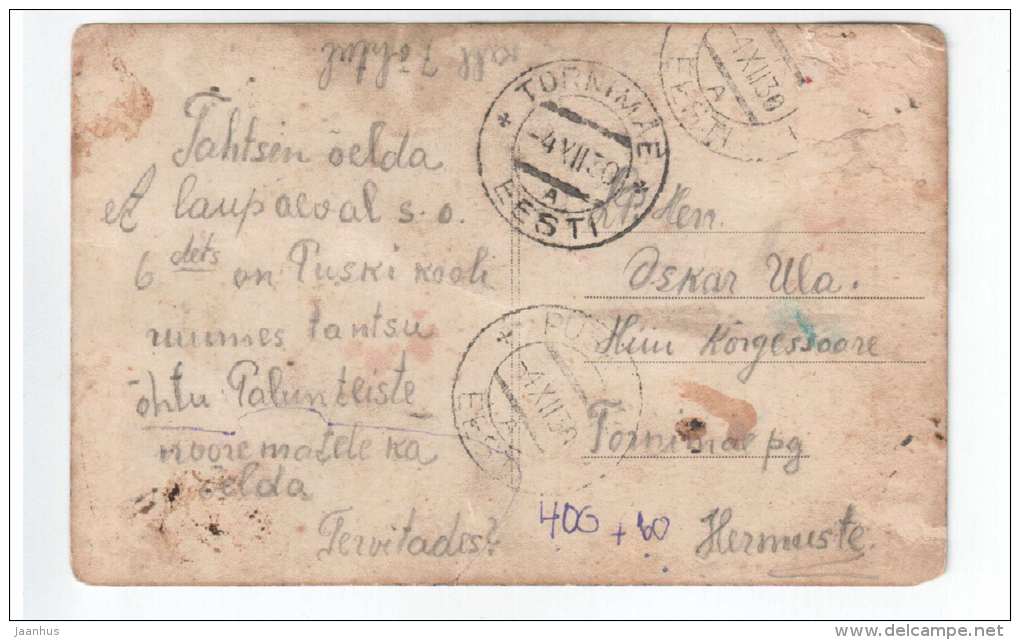 kell 7 õhtul
Tahtsen öelda
et laupäeval s.o.
6 dets on Puski kooli
ruumes tantsu
õhtu Palun teiste
noorematele ka
öelda
Tervitades?
TORNIMÄE
-4 XII 30
A
EESTI
-4 XII 30
A
EESTI
PU
-4 XII 30
A
EE
Lp. Herr.
Oskar Ula.
Hiiu Körgessoare
Tornimäe pg
Hermuste.
400 + 60
jaanhus
www.delcampe.net